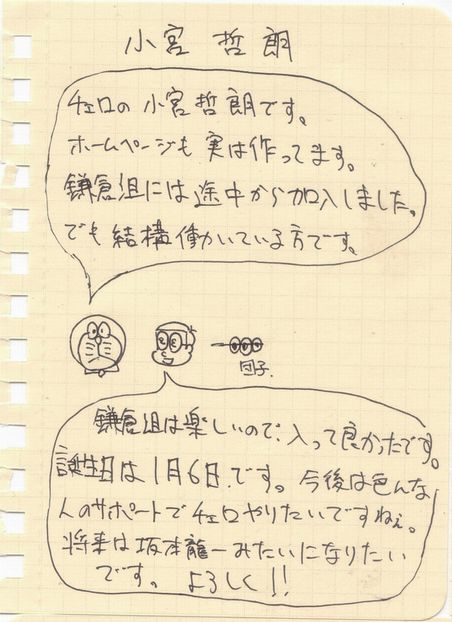 小宮 哲朗
チェロの 小宮哲朗です。
ホームページも 実は作ってます。
鎌倉組には途中から加入しました。
でも結構働いている方です。
団子.
鎌倉組は楽しいので、入って良かったです。
誕生日は1月6日.です。今後は色んな
人のサポートでチェロやりたいですねぇ。
将来は坂本龍一みたいになりたい
です。 よろしく!!